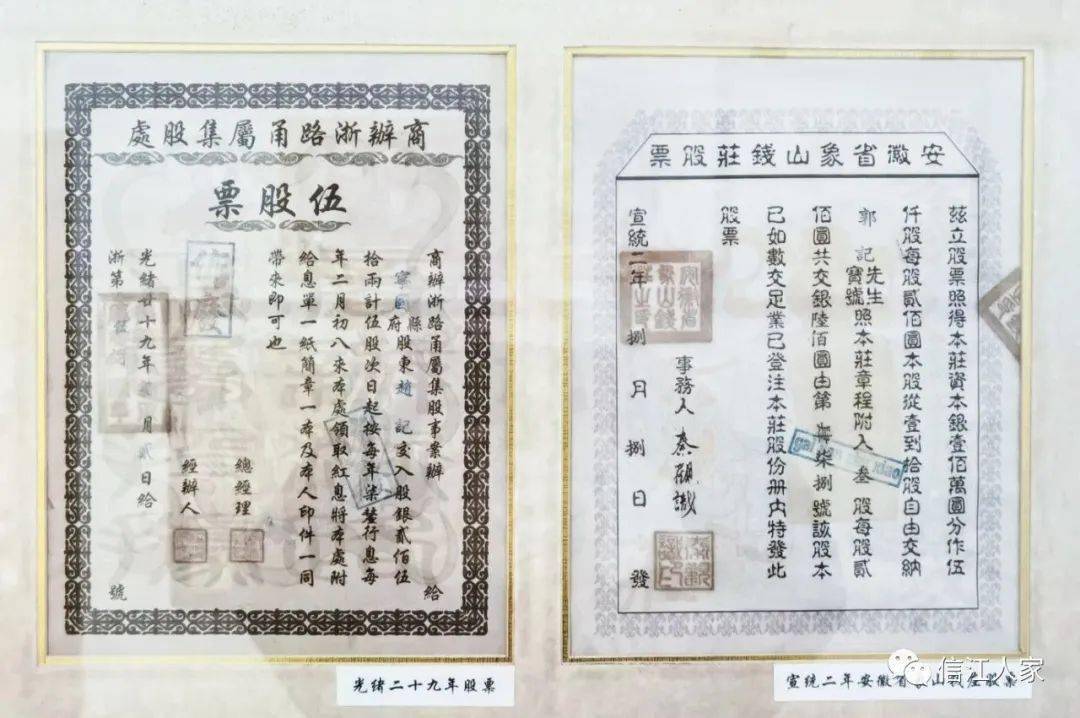 商辦浙路甬屬集股處
伍股票
商辦浙路甬屬集股事業辦給
寧國府縣股東趙記交入股銀貳佰伍
拾兩計伍股次日起按每年柒釐行息每
年二月初八來本處領取紅息將本處附
給息單一紙簡章一本及本人印件一同
帶來即可也
作廢
總經理
經辦人
光緒廿十九年貳月貳日給
浙第號
光緒二十九年股票
安徽省象山錢莊股票
茲立股票照得本莊資本銀壹佰萬圓分作伍
仟股每股貳佰圓本股從壹到拾股自由交納
郭記先生寶號照本莊章程附入叁股每股貳
佰圓共交銀陸佰圓由第柒捌號該股本
已如數交足業已登注本莊股份册內特發此
股票
事務人
宣統二年捌月捌日發
宣統二年安徽省象山錢莊股票
信江人家